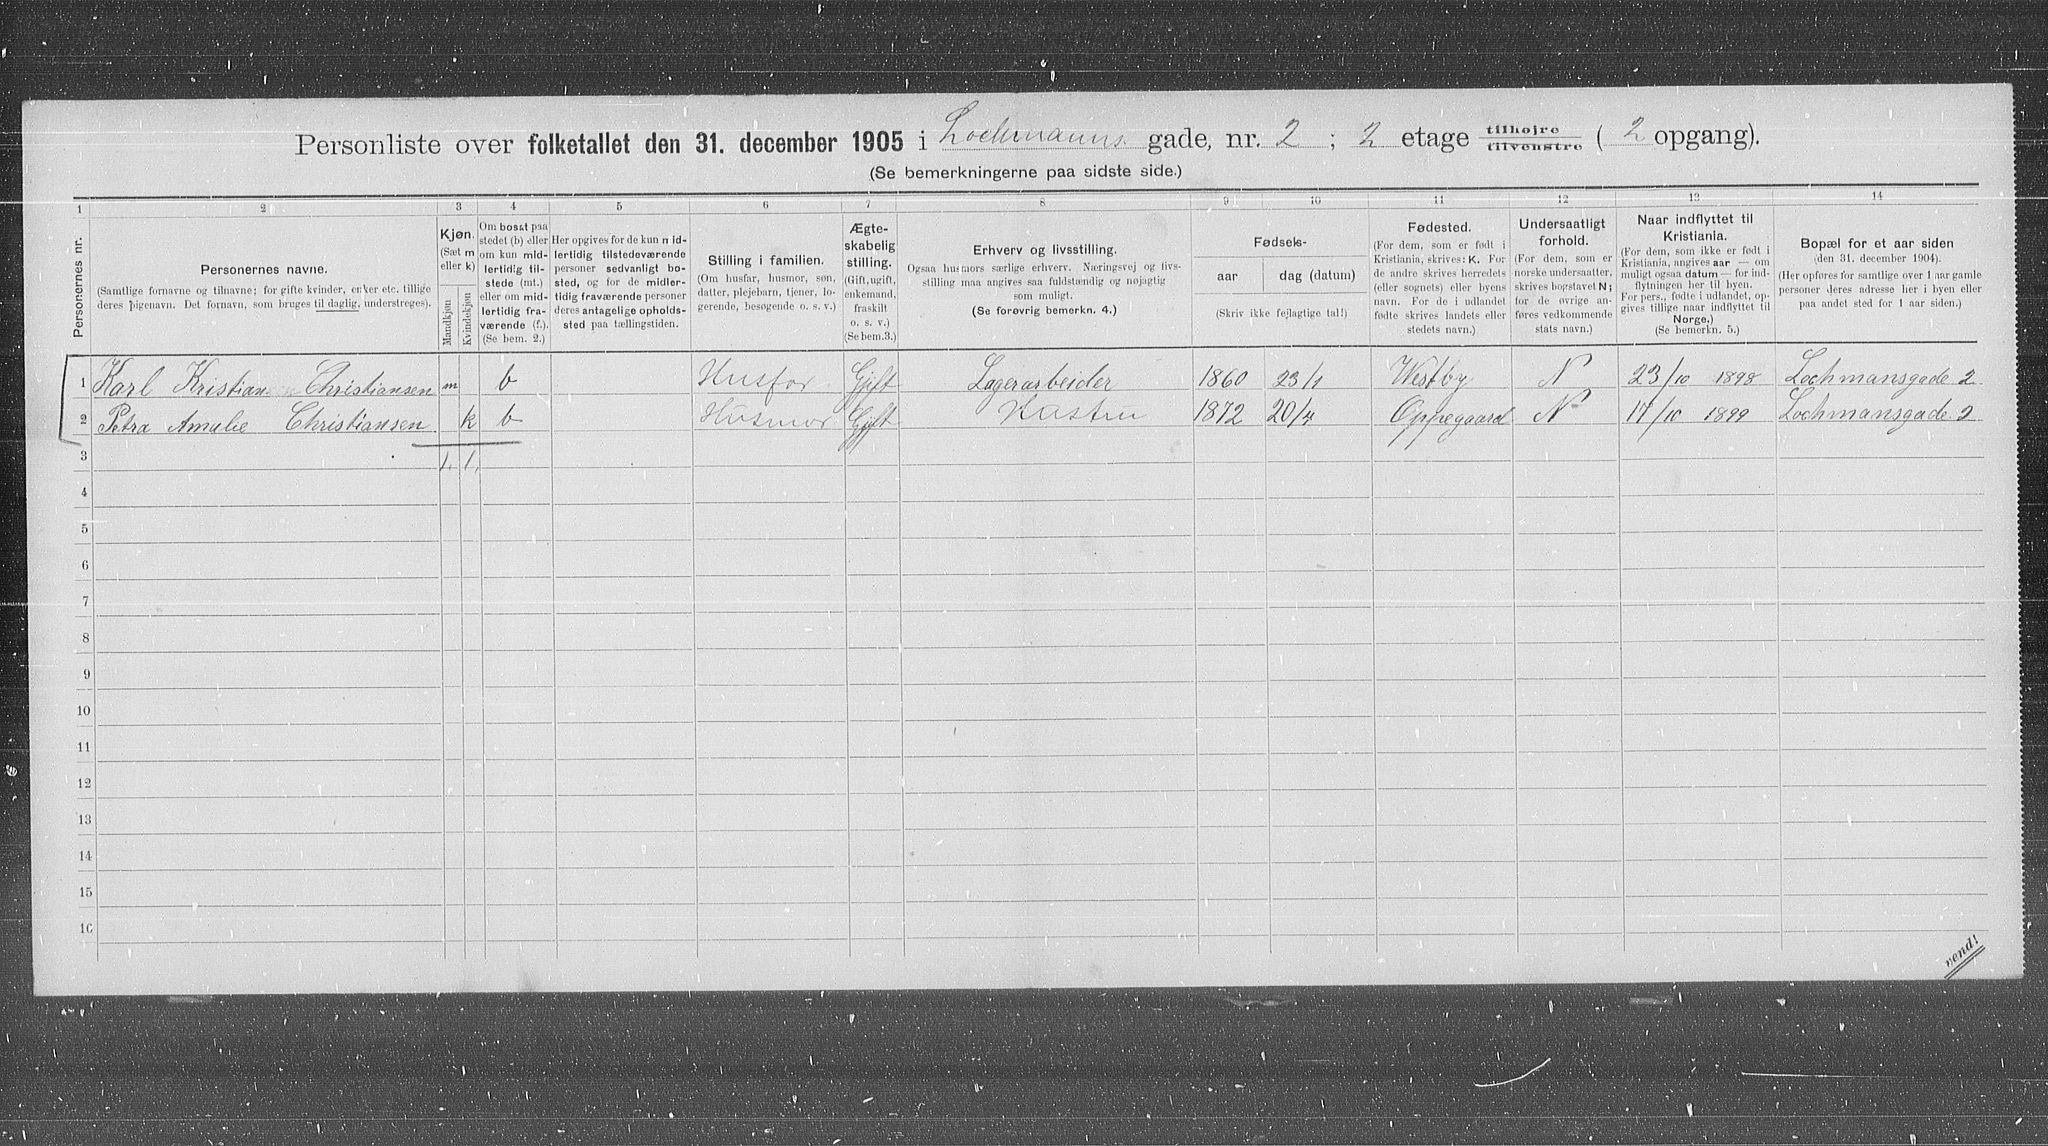 Personliste over folketallet den 31. december 1905 i Lochmanns gade, nr. 2 ; 2 etage tilhøjre tilvenstre ( 2 opgang).
(Se bemerkningerne paa sidste side.)
1 2 3 4 5 6 7 8 9 10 11 12 13 14
Personernes nr.
Personernes navne.
(Samtlige fornavne og tilnavne; for gifte kvinder, enker etc. tillige
deres pigenavn. Det fornavn, som bruges til daglig, understreges).
Kjøn.
(Sæt m
eller k)
Mandkjøn
Kvindekjøn
Om bosat paa
stedet (b) eller
om kun mid-
lertidig til-
stede (mt.)
eller om mid-
lertidig fra-
værende (f.).
(Se bem. 2.)
Her opgives for de kun mid-
lertidig tilstedeværende
personer sedvanligt bo-
sted, og for de midler-
tidig fraværende personer
deres antagelige opholds-
sted paa tællingstiden.
Stilling i familien.
(Om husfar, husmor, søn,
datter, plejebarn, tjener, lo-
gerende, besøgende o. s. v.)
Ægte-
skabelig
stilling.
(Gift, ugift,
enkemand,
fraskilt
o. s. v.)
(Se bem. 3.)
Erhverv og livsstilling.
Ogsaa husmors særlige erhverv. Næringsvej og livs-
stilling maa angives saa fuldstændig og nøjagtig
som muligt.
(Se forøvrig bemerkn. 4.)
Fødsels-
aar
dag (datum)
(Skriv ikke fejlagtige tal!)
Fødested.
(For dem, som er født i
Kristiania, skrives: K. For
de andre skrives herredets
(eller sognets) eller byens
navn. For de i udlandet
fødte skrives landets eller
stedets navn.)
Undersaatligt
forhold.
(For dem, som er
norske undersaatter,
skrives bogstavet N;
for de øvrige an-
føres vedkommende
stats navn.)
Naar indflyttet til
Kristiania.
(For dem, som ikke er født i
Kristiania, angives aar — om
muligt ogsaa datum — for ind-
flytningen her til byen.
For pers., fødte i udlandet, op-
gives tillige naar indflyttet til
Norge.)
(Se bemerkn. 5.)
Bopæl for et aar siden
(den 31. december 1904).
(Her opføres for samtlige over 1 aar gamle
personer deres adresse her i byen eller
paa andet sted for 1 aar siden.)
1 Karl Kristian Christiansen m b Husfar Gift Lagerarbeider 1860 23/1 Westby N 23/10 1898 Lochmansgade 2
2 Petra Amalie Christiansen k b Husmor Gift 1872 20/4 Oppegaard N 17/10 1899 Lochmansgade 2
3 1. 1.
4
5
6
7
8
9
10
11
12
13
14
15
16
vend!